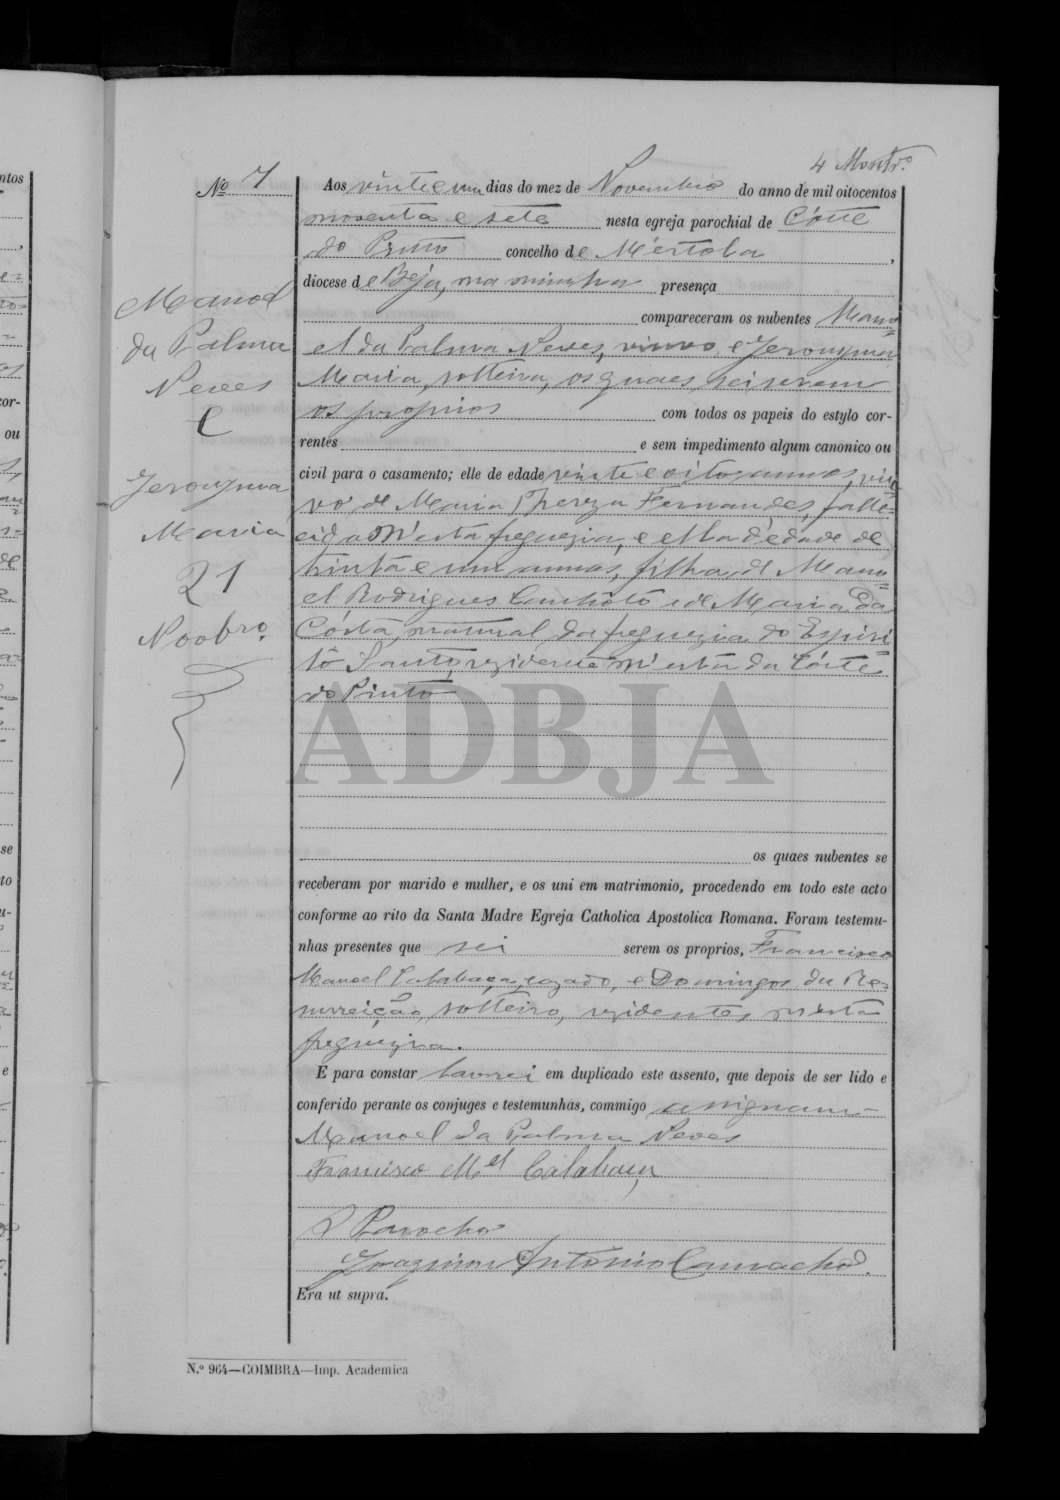 4 Montrº.
Nº 7
Aos vinte e um dias do mez de Novembro do anno de mil oitocentos
noventa e sete nesta egreja parochial de Córte
do Pinto concelho de Mértola,
diocese de Beja, na minha presença
compareceram os nubentes Mano=
el da Palma Neves, viuvo, e Jeronyma
Maria, solteira, os quaes sei serem
os proprios com todos os papeis do estylo cor-
rentes e sem impedimento algum canonico ou
civil para o casamento; elle de edade vinte e oito annos, viu=
vo de Maria Thereza Fernandes, falle=
cida n'esta freguezia, e ella d'edade de
trinta e um annos, filha de Mano=
el Rodrigues e de Maria da
Córta, natural da freguezia do Espiri=
to Santo, rezidente n'esta da Córte
do Pinto
Manoel
da Palma
Neves
e
Jeronyma
Maria
21
Noobro.
ADBJA
os quaes nubentes se
receberam por marido e mulher, e os uni em matrimonio, procedendo em todo este acto
conforme ao rito da Santa Madre Egreja Catholica Apostolica Romana. Foram testemu-
nhas presentes que sei serem os proprios, Francisco
Manoel Calabaça, cazado, e Domingos da Re=
surreição, solteiro, rezidentes n'esta
freguezia.
E para constar lavrei em duplicado este assento, que depois de ser lido e
conferido perante os conjuges e testemunhas, commigo assignam-
Manoel da Palma Neves
Francisco Mel Calabaça
O Parocho
Joaquim Antonio Camacho.
Era ut supra.
N.º 964—COIMBRA—Imp. Academica